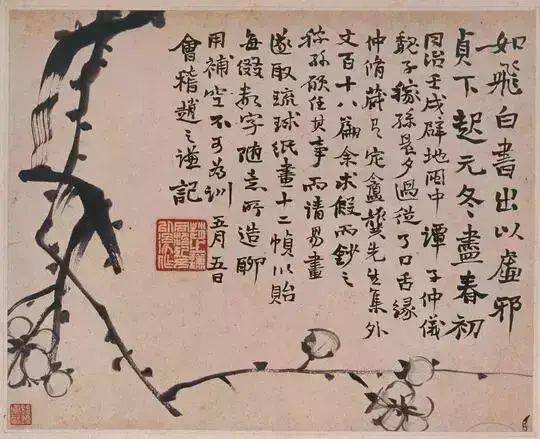 如飛白書出以虛邪
貞下起元冬盡春初
同治壬戌辟地閩中譚子仲儀
魏子稼孫晨夕過從了口舌緣
仲脩藏定盦龔先生集外
文百十八篇余求假而鈔之
稼孫願任其事而請易畫
遂取琉球紙畫十二幀以貽
每綴數字隨意所造聊
用補空不可為訓 五月五日
會稽趙之謙記